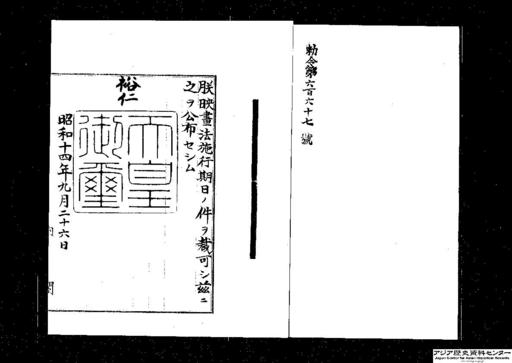 勅令第六百六十七號
朕映畫法施行期日ノ件ヲ裁可シ茲ニ
之ヲ公布セシム
裕仁
天皇
御璽
昭和十四年九月二十六日
アジア歴史資料センター
Japan Center for Asian Historical Records